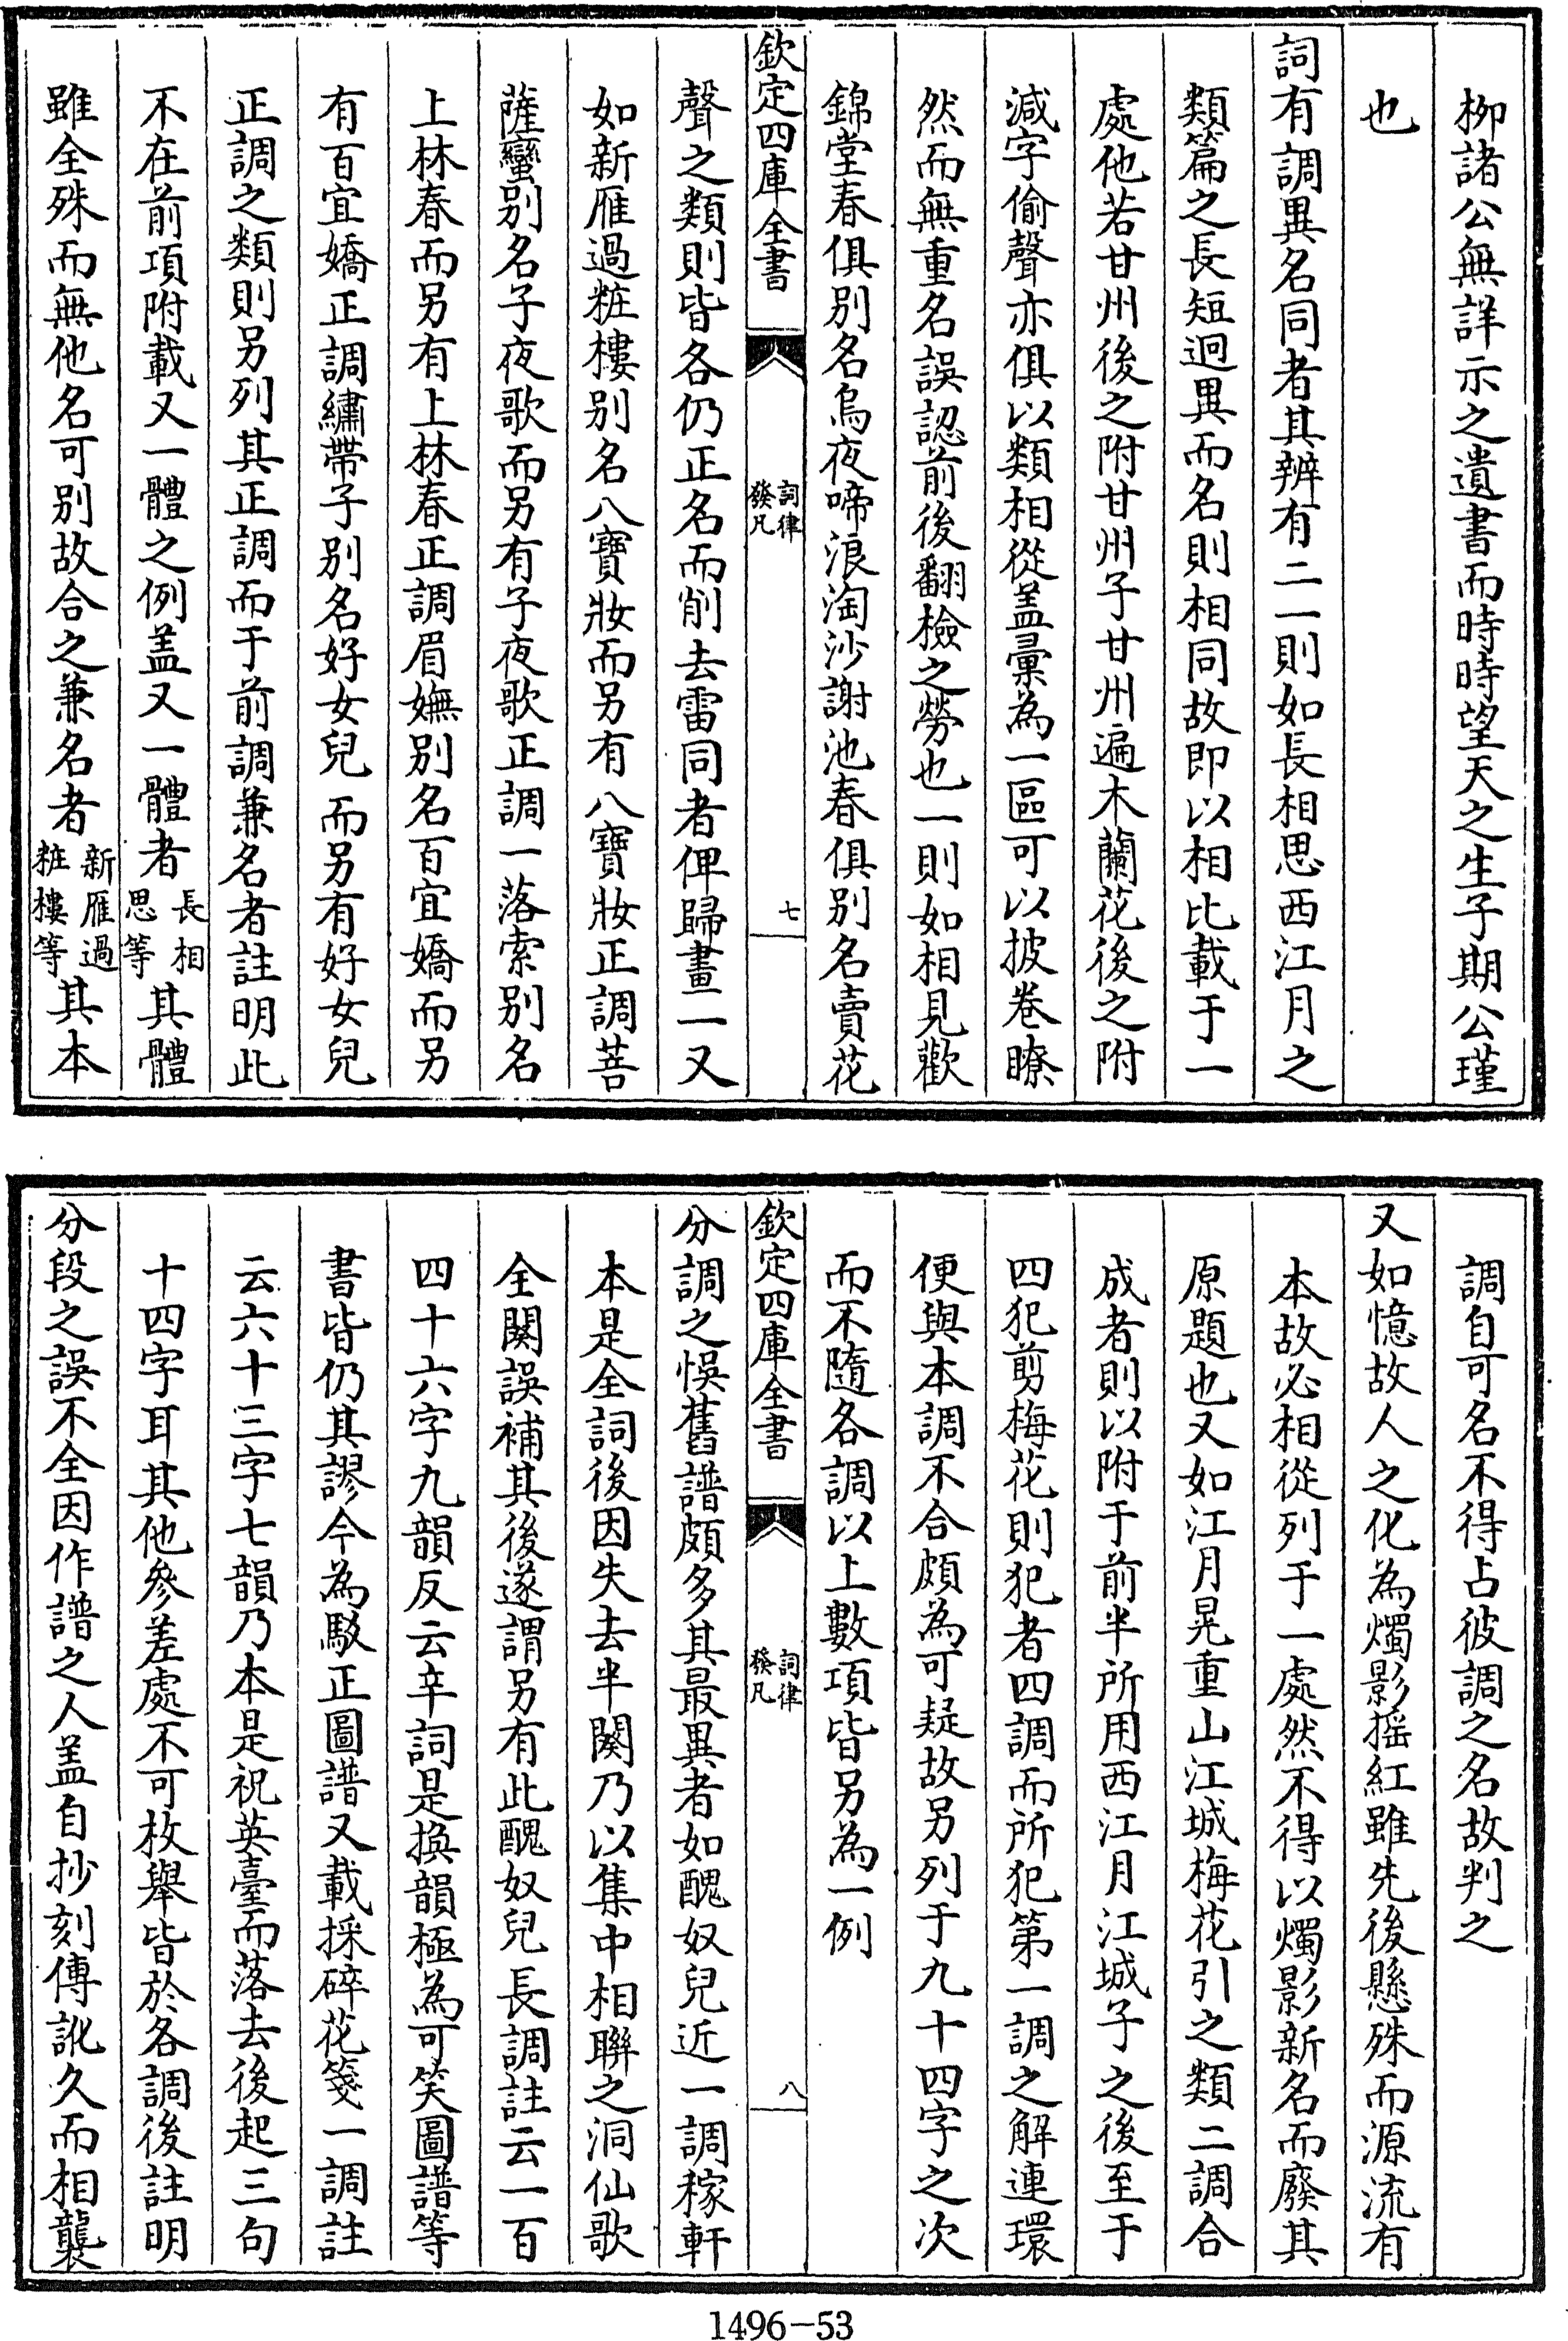 栁諸公無詳示之遺書而時時望天之生子期公瑾
也
詞有調異名同者其辨有二一則如長相思西江月之
類篇之長短迥異而名則相同故即以相比載于一
處他若甘州後之附甘州子甘州遍木蘭花後之附
減字偷聲亦俱以類相從盖彙為一區可以披卷瞭
然而無重名誤認前後翻檢之勞也一則如相見歡
錦堂春俱别名烏夜啼浪淘沙謝池春俱别名賣花
欽定四庫全書
詞律
發凡
七
聲之類則皆各仍正名而削去雷同者俾歸畫一又
如新雁過粧樓别名八寶妝而另有八寶妝正調菩
薩蠻别名子夜歌而另有子夜歌正調一落索别名
上林春而另有上林春正調眉嫵别名百宜嬌而另
有百宜嬌正調繡帶子别名好女兒而另有好女兒
正調之類則另列其正調而于前調兼名者註明此
不在前項附載又一體之例盖又一體者長相思等其體
雖全殊而無他名可别故合之兼名者新雁過粧樓等其本
調自可名不得占彼調之名故判之
又如憶故人之化為燭影摇紅雖先後懸殊而源流有
本故必相從列于一處然不得以燭影新名而廢其
原題也又如江月晃重山江城梅花引之類二調合
成者則以附于前半所用西江月江城子之後至于
四犯剪梅花則犯者四調而所犯第一調之解連環
便與本調不合頗為可疑故另列于九十四字之次
而不隨各調以上數項皆另為一例
欽定四庫全書
詞律
發凡
八
分調之悞舊譜頗多其最異者如醜奴兒近一調稼軒
本是全詞後因失去半闋乃以集中相聯之洞仙歌
全闋誤補其後遂謂另有此醜奴兒長調註云一百
四十六字九韻反云辛詞是換韻極為可笑圖譜等
書皆仍其謬今為駁正圖譜又載採碎花箋一調註
云六十三字七韻乃本是祝英臺而落去後起三句
十四字耳其他參差處不可枚舉皆於各調後註明
分段之誤不全因作譜之人盖自抄刻傳訛久而相襲
1496-53